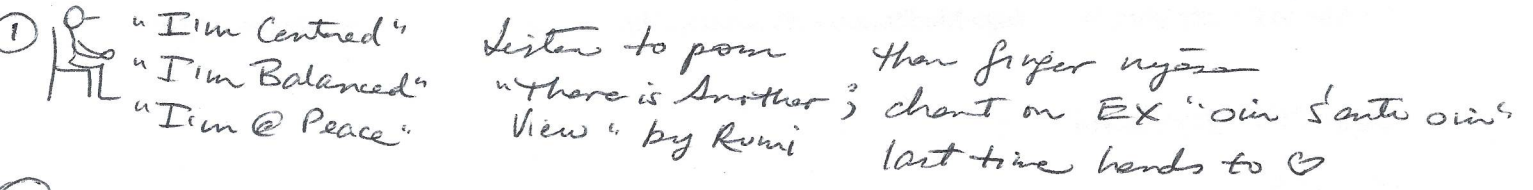 ①
"I'm Centred"
"I'm Balanced"
"I'm @ Peace"
Listen to poem
"There is Another
View" by Rumi
; then finger nyāsa
chant on EX "oṁ śānti oṁ"
last time hands to ♡